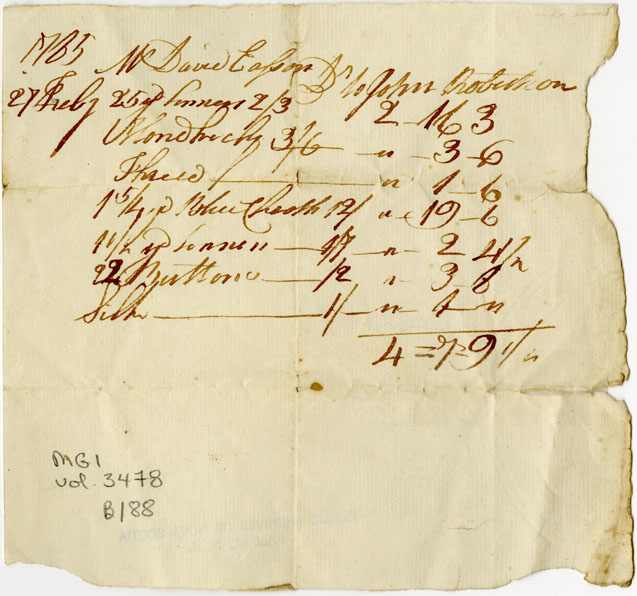 1785 Mr David Easson Dr to John Robertson
27 Feby 25 yd Linnen 2/3 2 - 16 3
3/6 - " - 3 - 6
Thread — " - 1 - 6
1 5/4 yd Blue Cloath 12/ " - 19 - 6
1 1/2 yd Linnen — 1/7 - " - 2 4 1/2
22 Buttons — /2 " - 3 8
Silk — 1/ - " - 1 - "
4 = 7 = 9 1/2
MG1
vol. 3478
B188
PUBLIC ARCHIVES OF NOVA SCOTIA
HALIFAX, N. S.